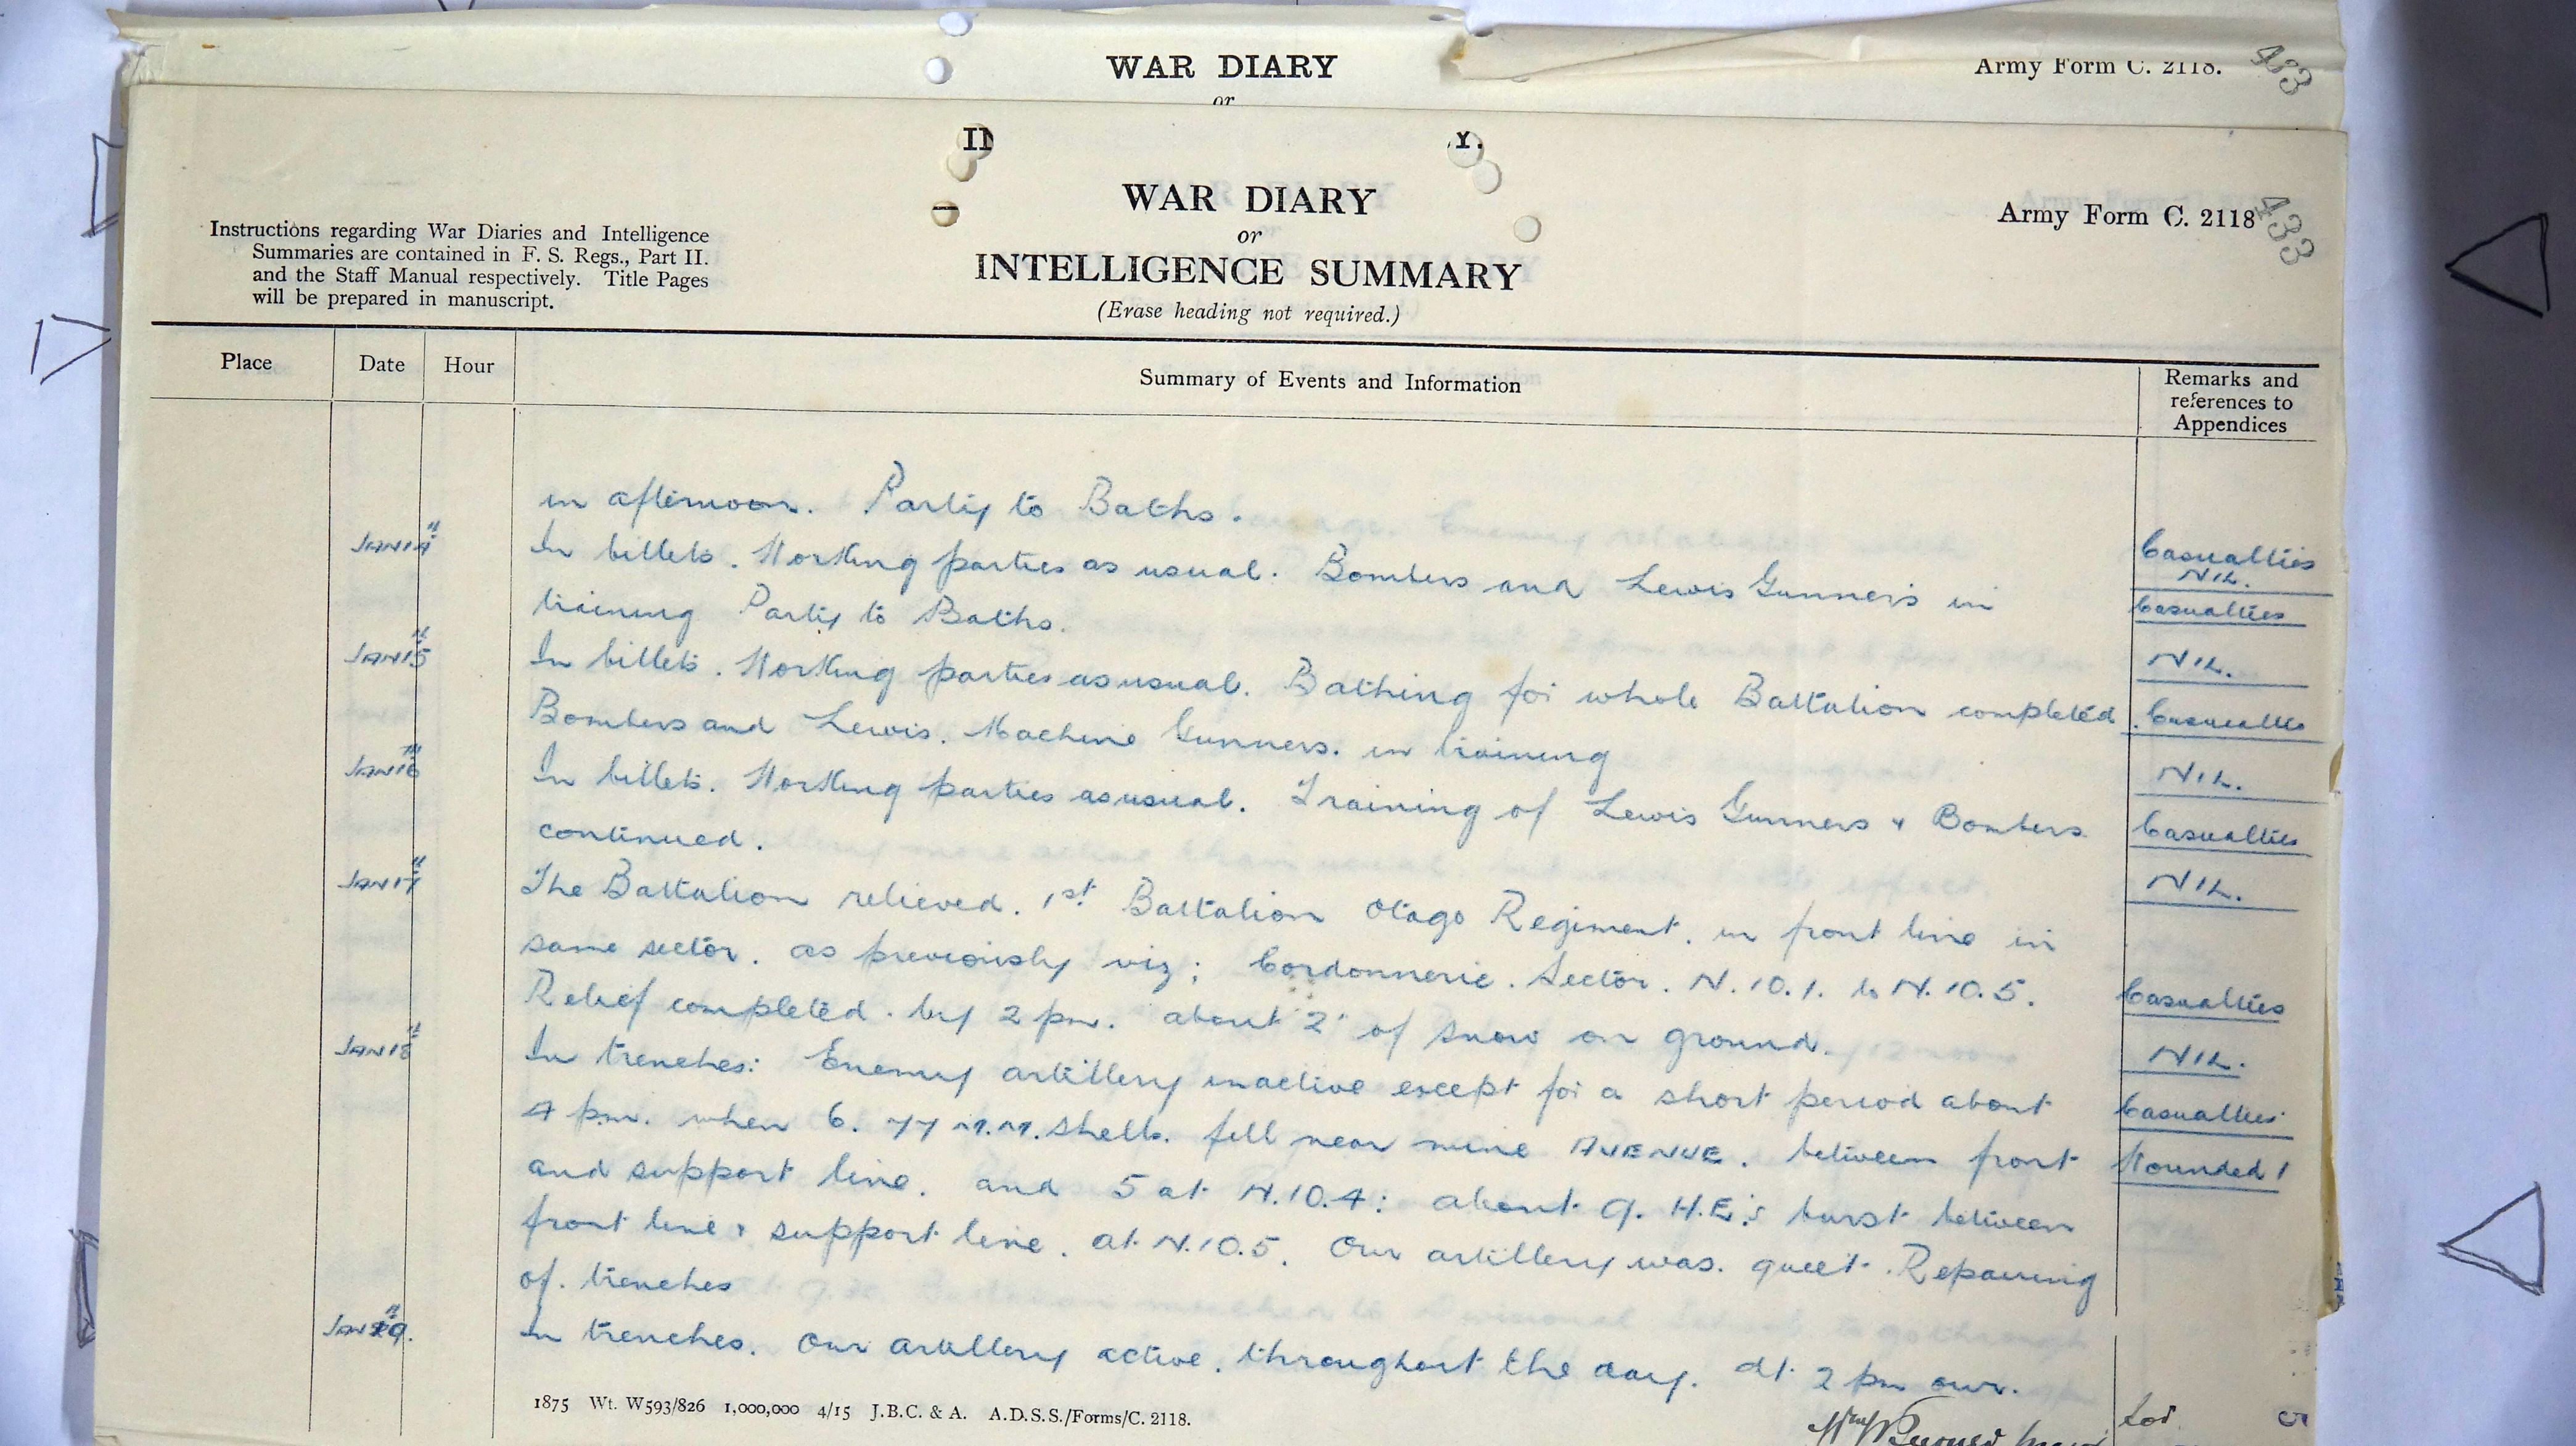 WAR DIARY
or
Army Form C. 2118.
433
IN Y.
WAR DIARY
or
INTELLIGENCE SUMMARY
(Erase heading not required.)
Army Form C. 2118
433
Instructions regarding War Diaries and Intelligence
Summaries are contained in F. S. Regs., Part II.
and the Staff Manual respectively. Title Pages
will be prepared in manuscript.
Place Date Hour Summary of Events and Information Remarks and references to Appendices
in afternoon. Party to Baths.
JAN 14th In billets. Working parties as usual. Bombers and Lewis Gunners in Casualties NIL.
training Party to Baths. Casualties
JAN 15th In billets. Working parties as usual. Bathing for whole Battalion completed NIL.
Bombers and Lewis. Machine Gunners. in training Casualties
JAN 16th In billets. Working parties as usual. Training of Lewis Gunners & Bombers NIL.
continued. Casualties
JAN 17th The Battalion relieved. 1st. Battalion Otago Regiment. in front line in NIL.
same sector. as previously viz; Cordonnerie. Sector. N.10.1. to N.10.5.
Relief completed. by 2 pm. about 2" of snow on ground. Casualties
JAN 18th In trenches: Enemy artillery inactive except for a short period about NIL.
4 p.m. when 6. 77 M.M. shells. fell near mine AVENUE. between front Casualties
and support line. and 5 at N.10.4: about 9. H.E.'s burst between Wounded 1
front line & support line. at N.10.5. Our artillery was. quiet. Repairing
of. trenches
JAN 19th. In trenches. Our artillery active. throughout the day. At 2 pm our.
1875 Wt. W593/826 1,000,000 4/15 J.B.C. & A. A.D.S.S./Forms/C. 2118.